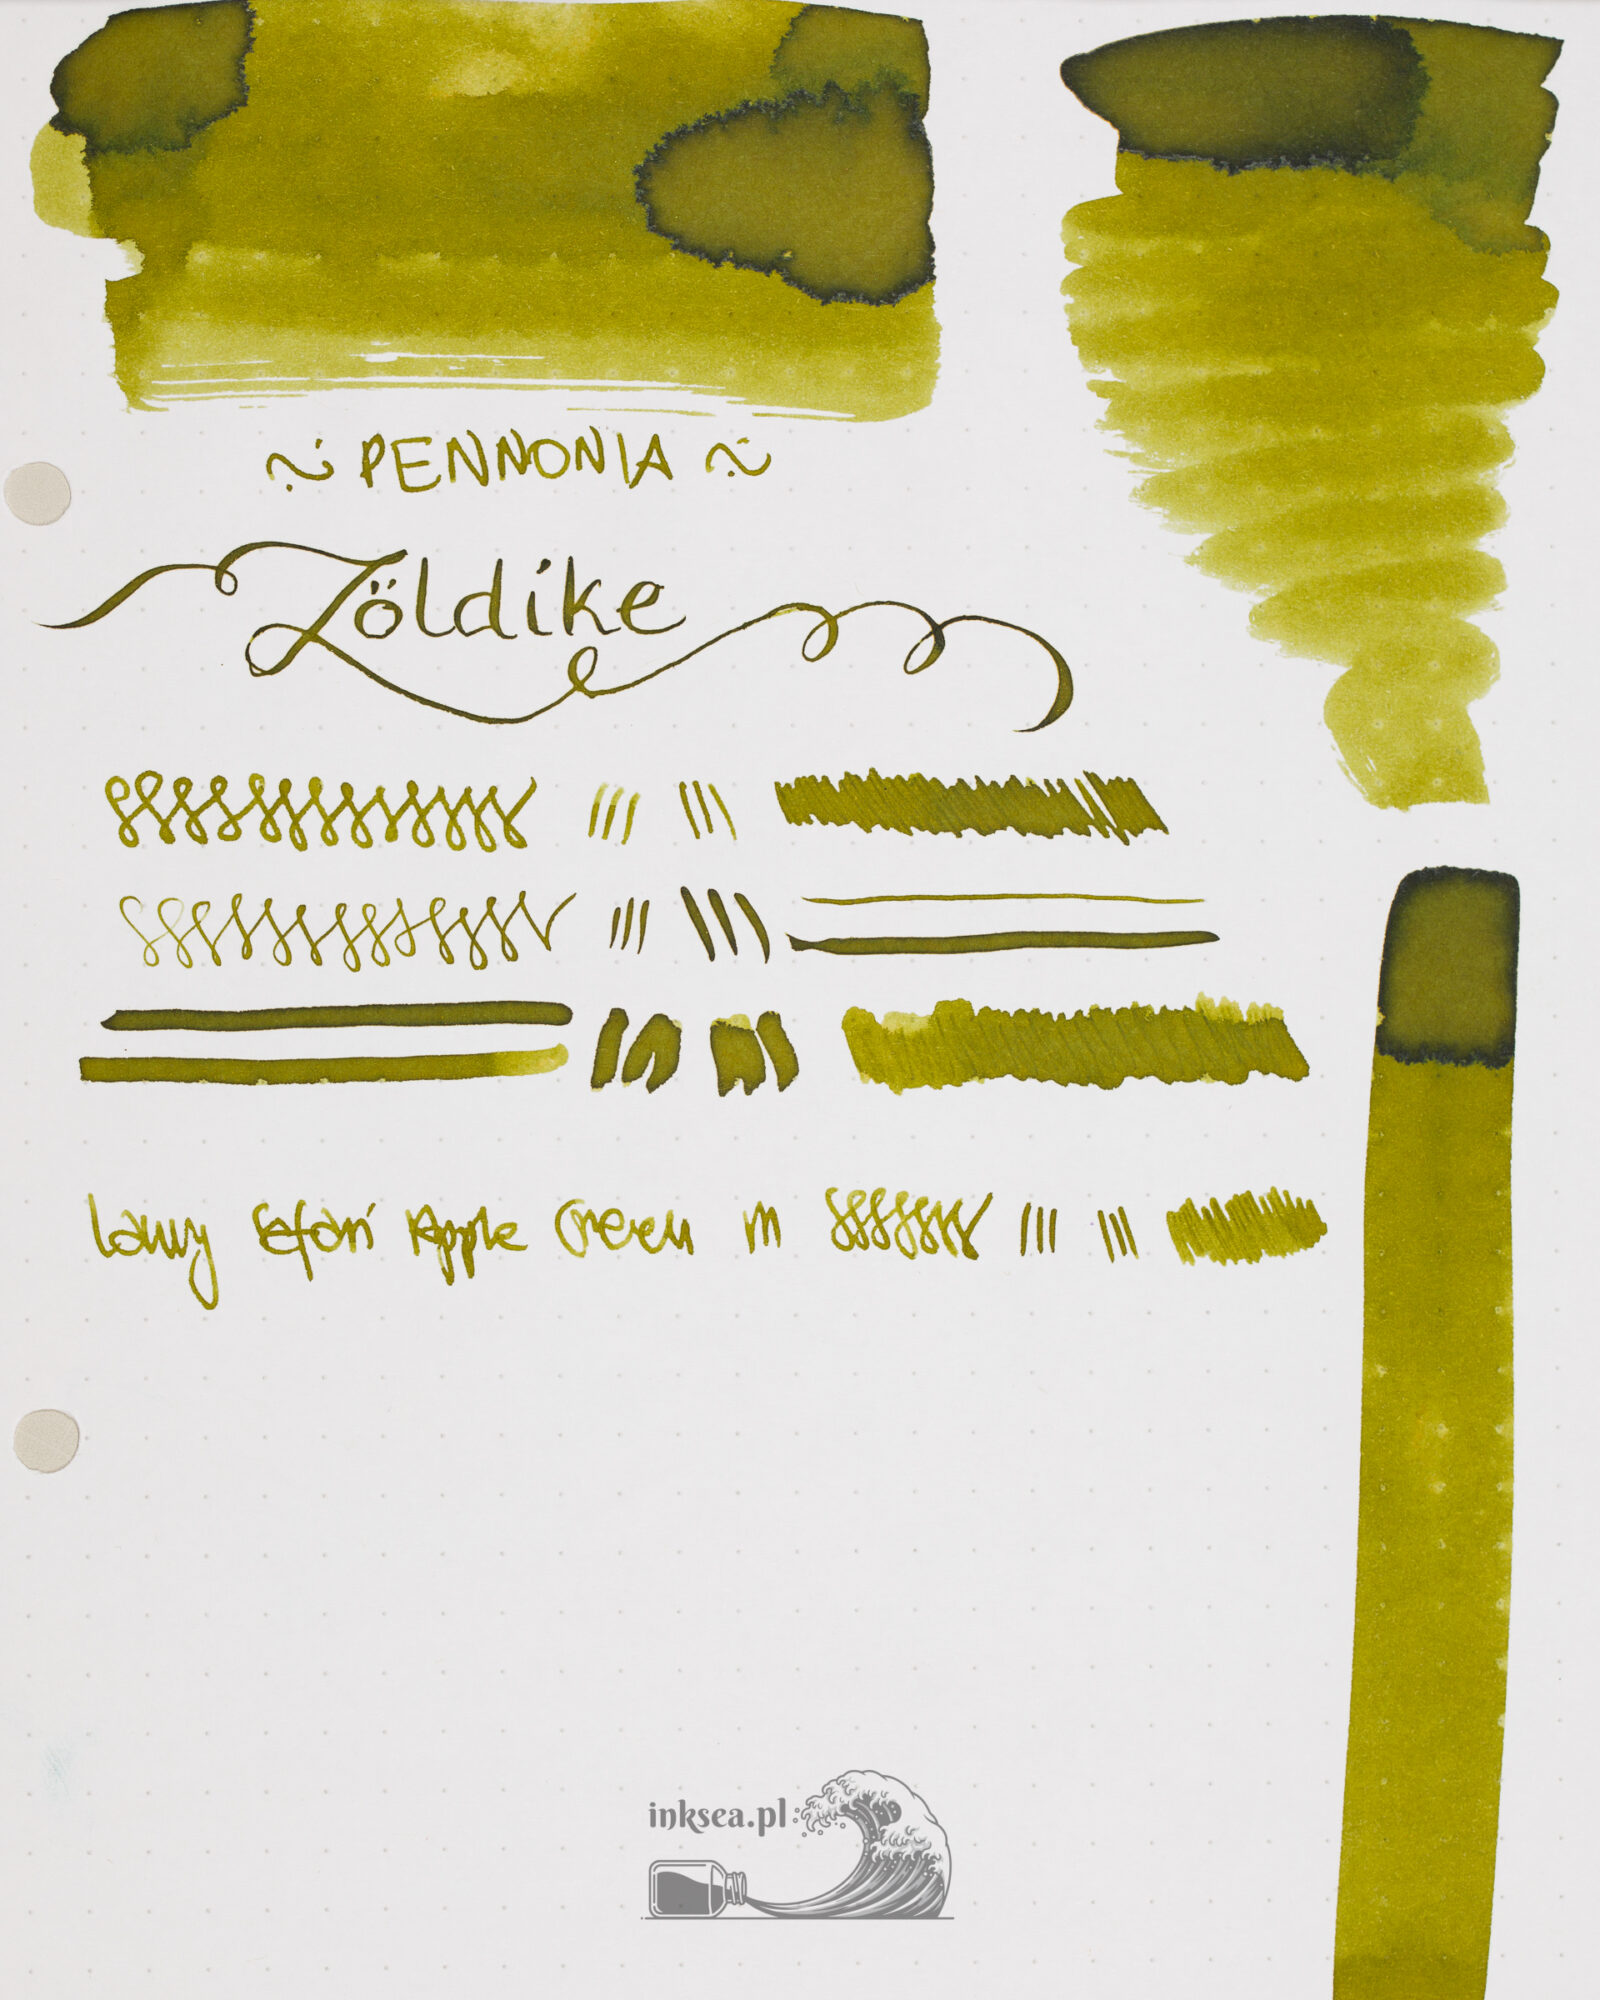 ~ PENNONIA ~
Zöldike
Lamy Safari Apple Green m
inksea.pl